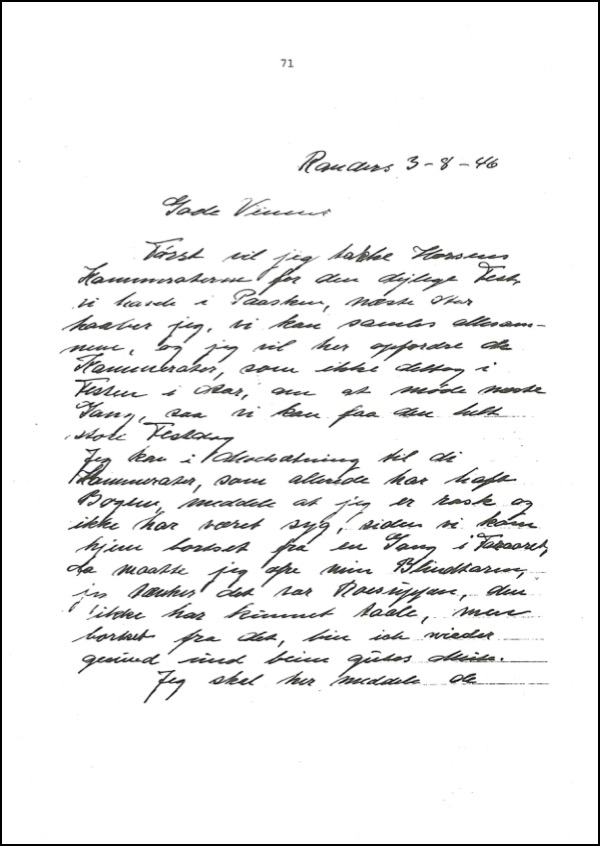 71
Randers 3-8-46
Gode Venner
Først vil jeg takke Horsens
Kammeraterne for den dejlige Fest,
vi havde i Paasken, næste Aar
haaber jeg, vi kan samles allesam-
men, og jeg vil her opfordre de
Kammerater, som ikke deltog i
Festen i Aar, om at møde næste
Gang, saa vi kan faa den helt
store Festdag
Jeg kan i Modsætning til de
Kammerater, som allerede har haft
Bogen, meddele at jeg er rask og
ikke har været syg, siden vi kom
hjem bortset fra en Gang i Foraaret,
da maatte jeg ofre min Blindtarm,
jeg tænker det var Roesuppen, den
ikke har kunnet taale, men
bortset fra det, bin ich wieder
gesund und beim gutes
Jeg skal her meddele de